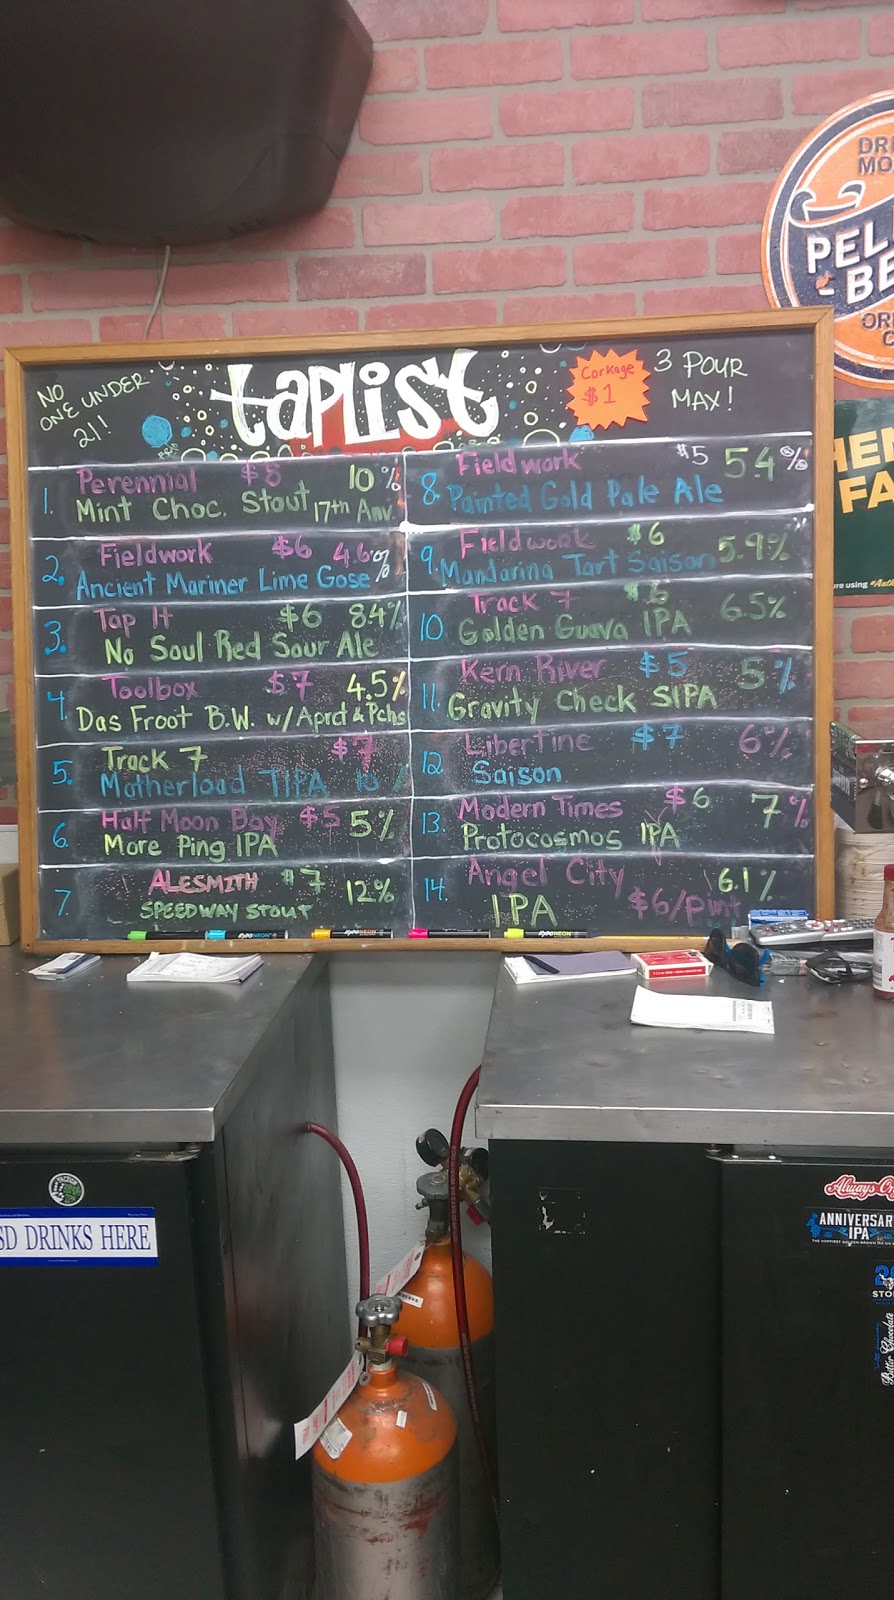 NO
ONE UNDER
21!
tapList
Corkage
$1
3 POUR
MAX!
1. Perennial $8 10%
Mint Choc. Stout 17th Anv.
2. Fieldwork $6 4.6%
Ancient Mariner Lime Gose
3. Tap It $6 8.4%
No Soul Red Sour Ale
4. Toolbox $7 4.5%
Das Froot B.W. w/Aprct & Pchs
5. Track 7 $7
Motherload TIPA 10%
6. Half Moon Bay $5 5%
More Ping IPA
7. ALESMITH $7 12%
SPEEDWAY STOUT
8. Fieldwork $5 5.4%
Painted Gold Pale Ale
9. Fieldwork $6 5.9%
Mandarina Tart Saison
10. Track 7 $6 6.5%
Golden Guava IPA
11. Kern River $5 5%
Gravity Check SIPA
12. Libertine $7 6%
Saison
13. Modern Times $6 7%
Protocosmos IPA
14. Angel City 6.1%
IPA $6/pint
DRI
MO
PEL
BE
ORE
C
HEN
FA
re using
EXPO NEON
EXPO NEON
EXPO NEON
SD DRINKS HERE
Always On
ANNIVERSAR
IPA
STO
Bitter Chocolate